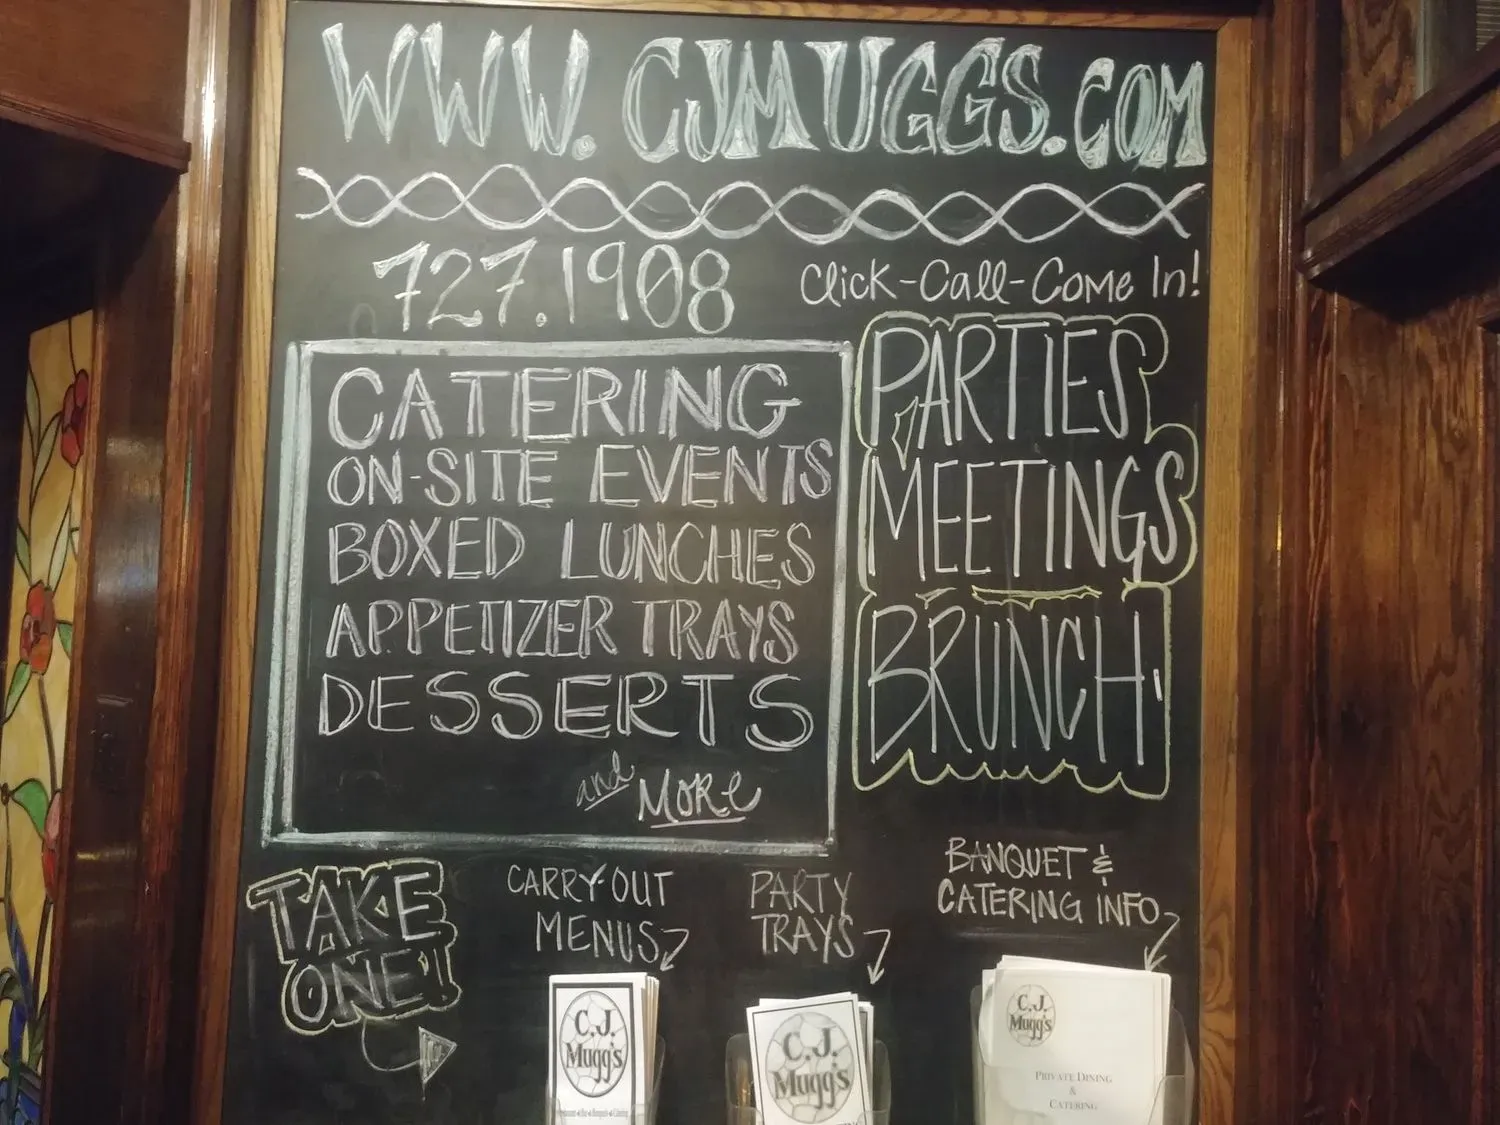 WWW.CJMUGGS.COM
727.1908
Click-Call-Come In!
CATERING
ON-SITE EVENTS
BOXED LUNCHES
APPETIZER TRAYS
DESSERTS
and MORE
PARTIES
MEETINGS
BRUNCH
TAKE
ONE!
CARRY-OUT
MENUS
PARTY
TRAYS
BANQUET &
CATERING INFO
C.J.
Mugg's
C.J.
Mugg's
C.J.
Mugg's
PRIVATE DINING
&
CATERING